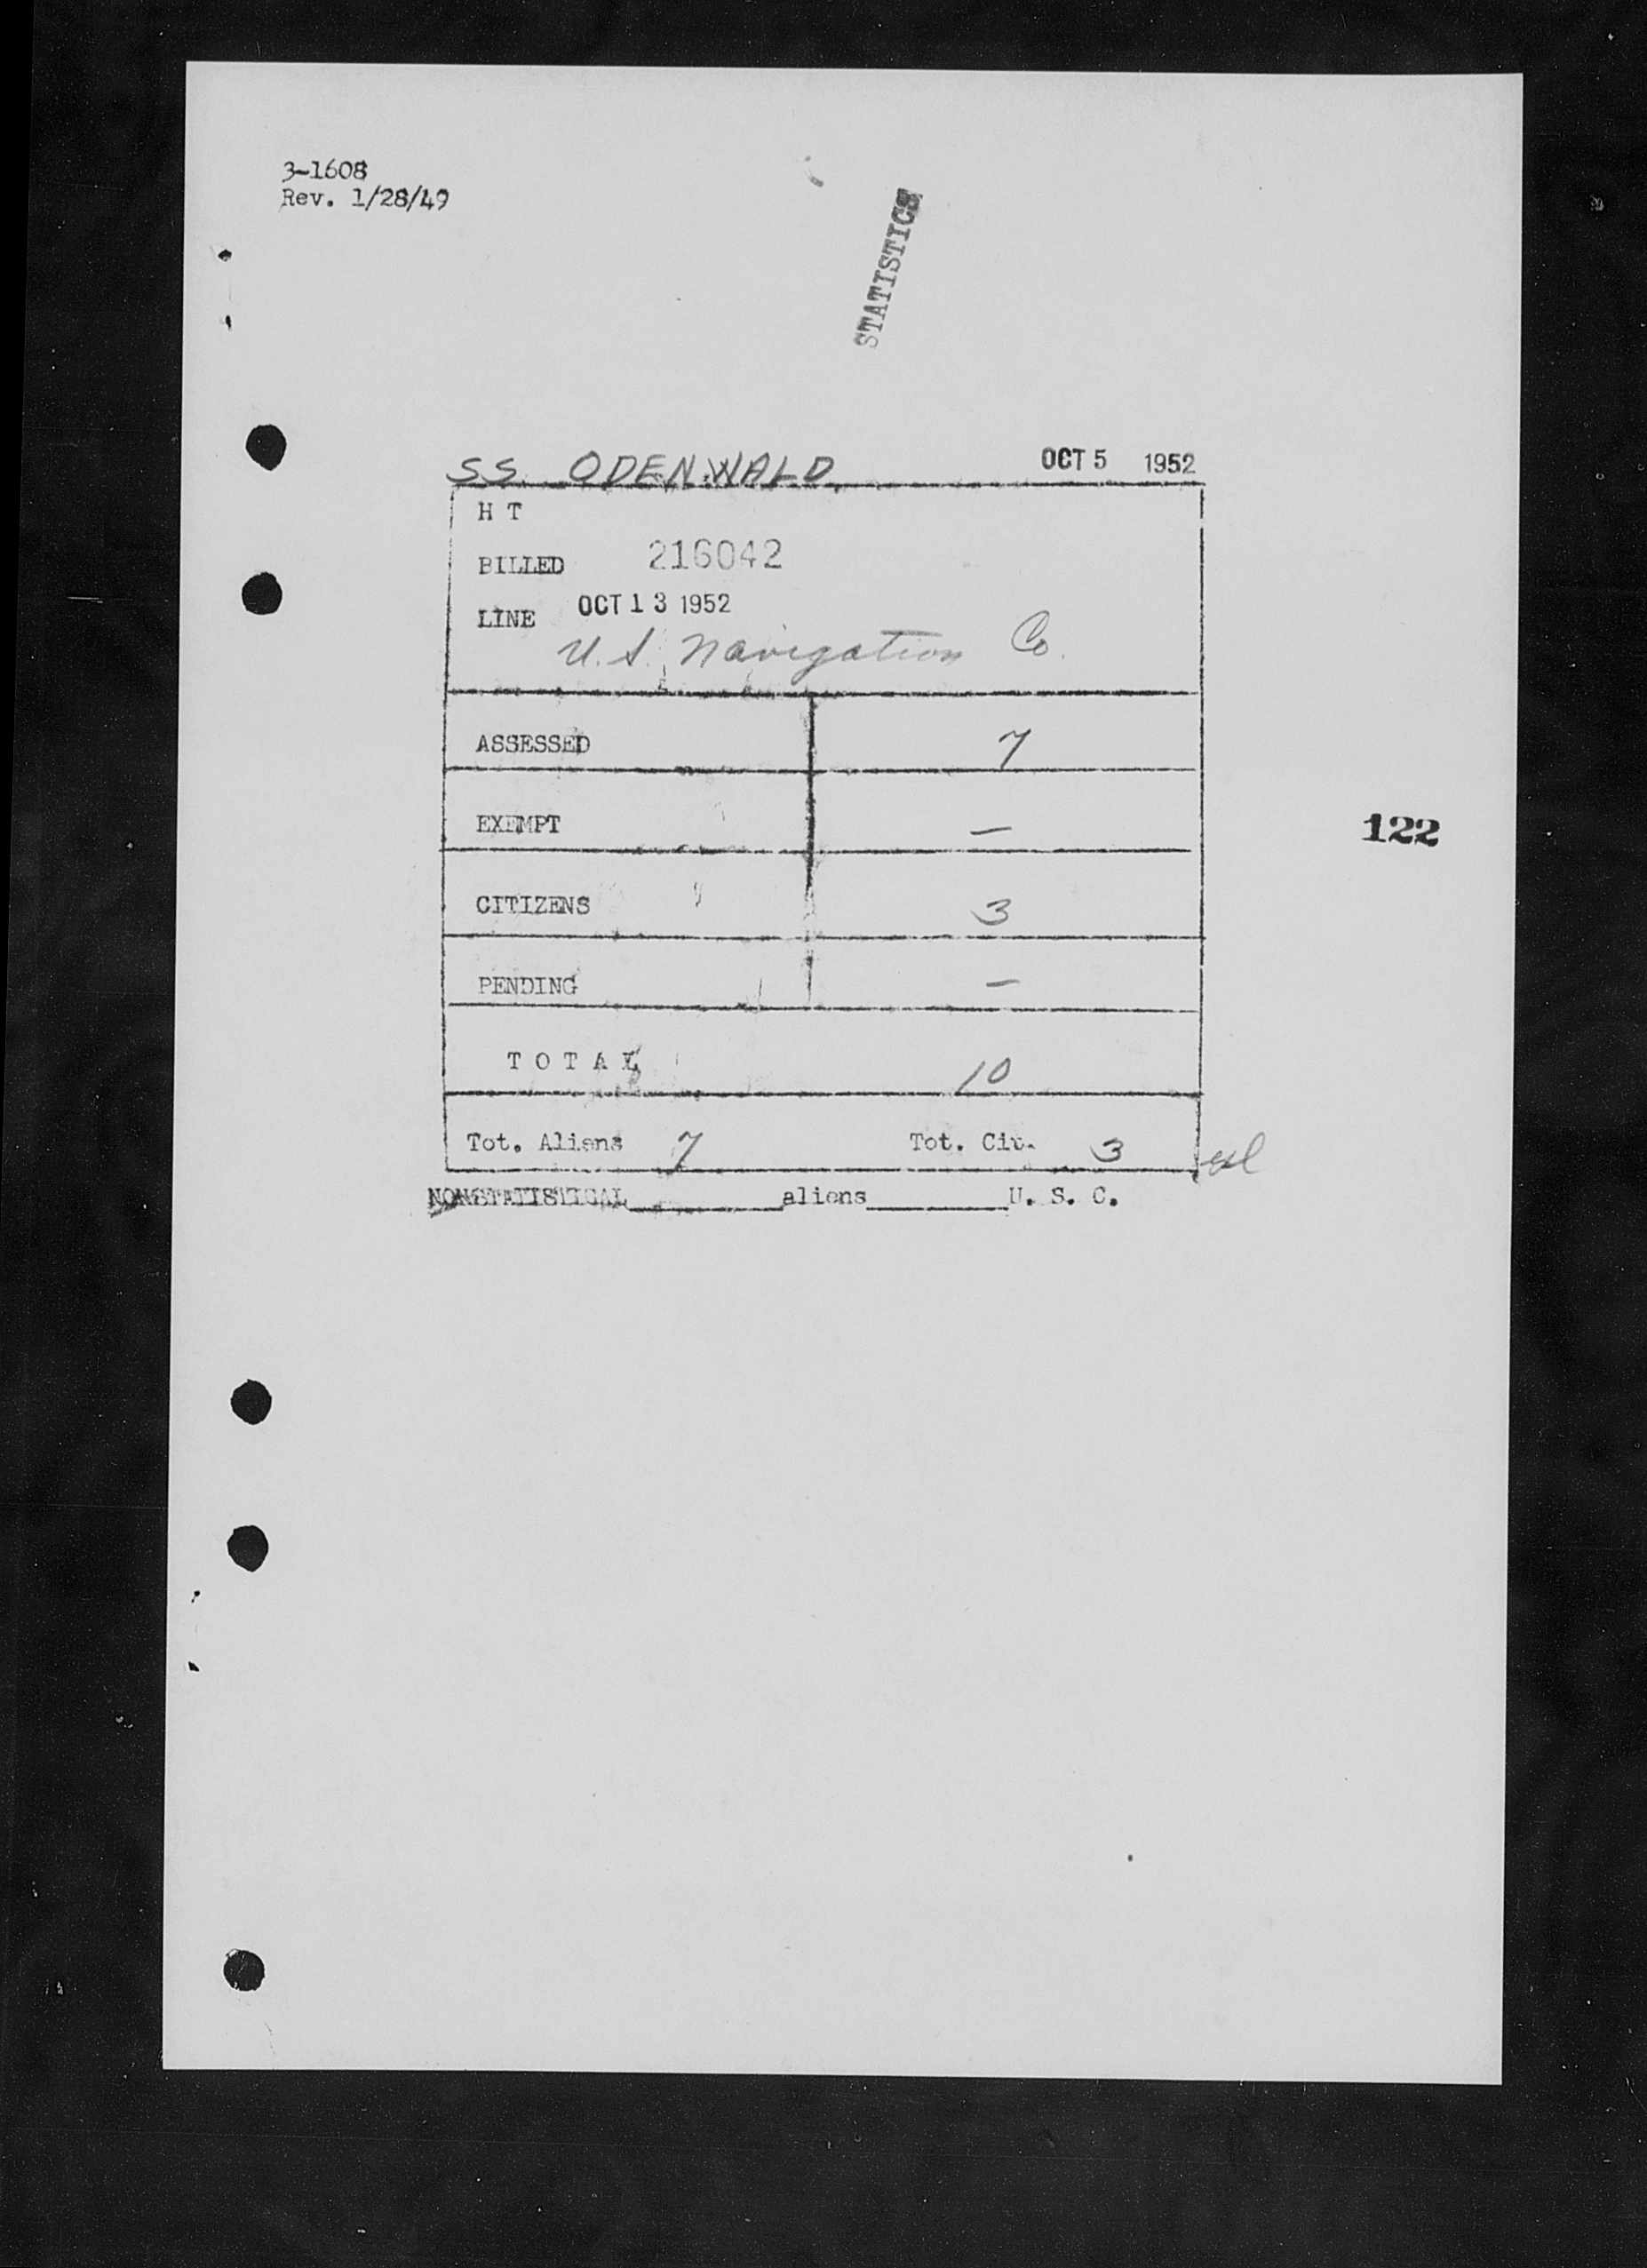 3-1608
Rev. 1/28/49
STATISTICS
SS. ODENWALD OCT 5 1952
H T
BILLED 216042
LINE OCT 13 1952
U.S. Navigation Co.
ASSESSED 7
EXEMPT —
122
CITIZENS 3
PENDING —
TOTAL 10
Tot. Aliens 7 Tot. Cit. 3
NONSTATISTICAL aliens U. S. C.